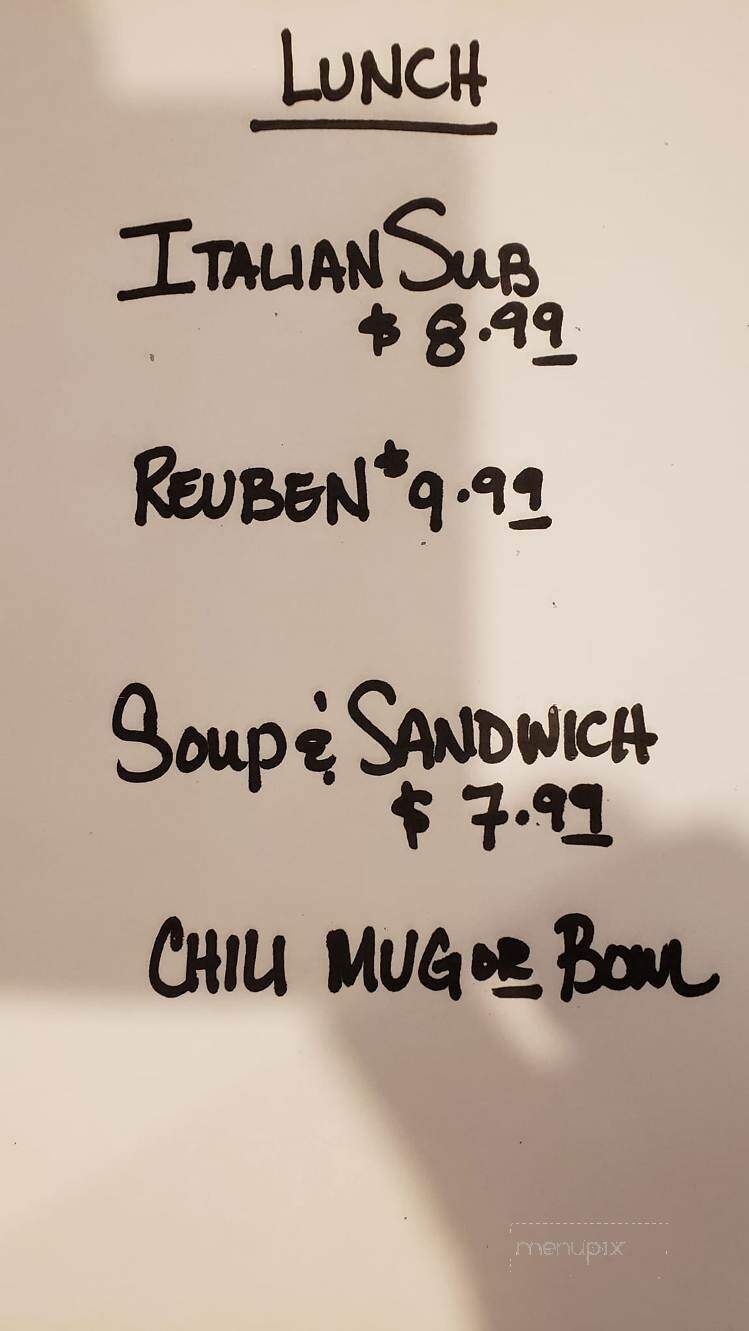 LUNCH
ITALIAN SUB
$ 8.99
REUBEN $9.99
Soup & SANDWICH
$ 7.99
CHILI MUG OR BOWL
menupix